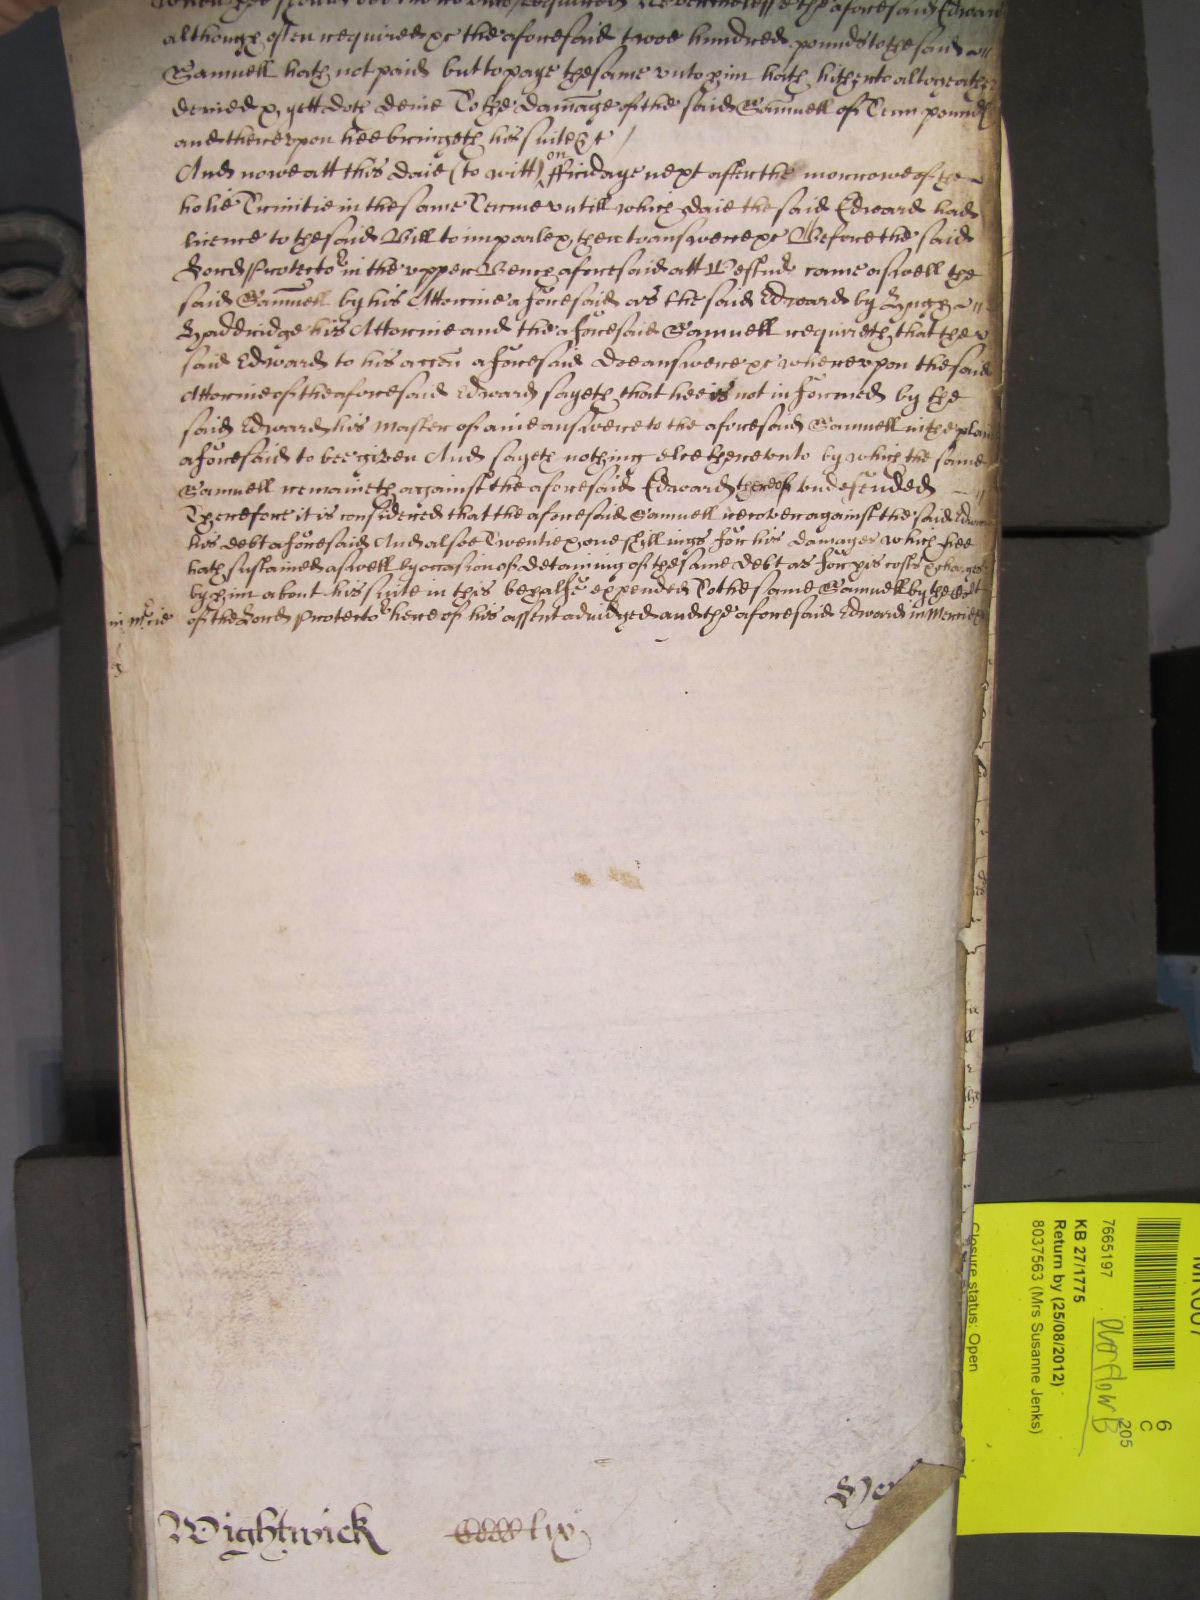 although often required &c the aforesaid twoe hundred pounds to the said
Samuell hath not paid but to paye the same unto him hath hitherto altogeather
denied &, yett doth denie To the damage of the said Samuell of Tenn pounds
and thereupon hee bringeth his suite &c /
And nowe att this daie (to witt) on ffridaye next after the morrowe of the
holie Trinitie in the same Terme untill which daie the said Edward had
licence to the said Bill to imparle &, then to answere &c Before the said
Lord Protector in the upper Bench aforesaid att Westm̃ came aswell the
said Samuell by his Attornie aforesaid as the said Edward by Hugh
his Attornie and the aforesaid Samuell requireth, that the
said Edward to his acc̃on aforesaid doe answere &c whereupon the said
Attornie of the aforesaid Edward sayeth that hee is not informed by the
said Edward his Master of anie answere to the aforesaid Samuell in the
aforesaid to bee given And sayeth nothing else thereunto by which the same
Samuell remaineth against the aforesaid Edward thereof undefended
Therefore it is considered that the aforesaid Samuell recover against the said
his debt aforesaid And alsoe Twentie & one shillings for his damages which hee
hath sustained aswell by occasion of detaining of the same debt as for his costs &
by him about his suite in this behalfe expended To the same Samuell by the
in m̃cie of the Lord Protector here of his assent adiudged and the aforesaid Edward in Mercie &c
Wightwick lix
Closure status: Open
7665197
KB 27/1775
Return by (25/08/2012)
8037563 (Mrs Susanne Jenks)
6
C
205